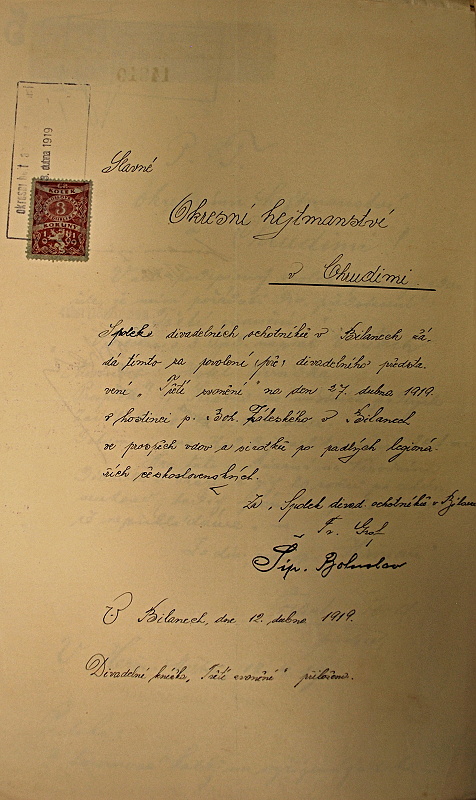 14919
dubna 1919
KOLEK
3
KORUNY
Slavné
Okresní hejtmanství
v Chrudimi.
Spolek divadelních ochotníků v Bílanech žá-
dá tímto za povolení divadelního předsta-
vení „Třetí zvonění" na den 27. dubna 1919.
v hostinci p. Boh. Záleského v Bílanech
ve prospěch vdov a sirotků po padlých legioná-
řích československých.
Za „Spolek divad. ochotníků v Bílanech
Fr. Gróf
Šíp. Bohuslav
V Bílanech, dne 12. dubna 1919.
Divadelní knížka „Třetí zvonění" přiložena.